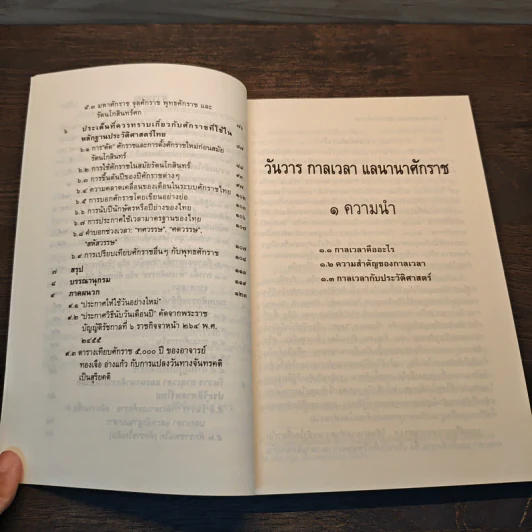 ๕.๓ มหาศักราช จุลศักราช พุทธศักราช และ
รัตนโกสินทร์ศก
๖ ประเด็นที่ควรทราบเกี่ยวกับศักราชที่ใช้ใน
หลักฐานประวัติศาสตร์ไทย
๖.๑ การ"ตัด" ศักราชและการตั้งศักราชใหม่ก่อนสมัย
รัตนโกสินทร์
๖.๒ การใช้ศักราชในสมัยรัตนโกสินทร์
๖.๓ การขึ้นต้นปีของปีศักราชต่างๆ
๖.๔ ความคลาดเคลื่อนของเดือนในระบบศักราชไทย
๖.๕ การบอกศักราชโดยเขียนอย่างย่อ
๖.๖ การนับปีนักษัตรหรือปีอย่างของไทย
๖.๗ การประกาศใช้เวลามาตรฐานของไทย
๖.๘ คำบอกช่วงเวลา: "ทศวรรษ", "ศตวรรษ",
"สหัสวรรษ"
๖.๙ การเปรียบเทียบศักราชอื่นๆ กับพุทธศักราช
๗ สรุป
๘ บรรณานุกรม
๙ ภาคผนวก
๙.๑ "ประกาศให้ใช้วันอย่างใหม่"
๙.๒ "ประกาศวิธีนับวันเดือนปี" คัดจากพระราช
บัญญัติรัชกาลที่ ๖ ราชกิจจาหน้า ๒๖๔ พ.ศ.
๒๔๕๕
๙.๓ ตารางเทียบศักราช ๕,๐๐๐ ปี ของอาจารย์
ทองเจือ อ่างแก้ว กับการแปลงวันทางจันทรคติ
เป็นสุริยคติ
วันวาร กาลเวลา แลนานาศักราช
๑ ความนำ
๑.๑ กาลเวลาคืออะไร
๑.๒ ความสำคัญของกาลเวลา
๑.๓ กาลเวลากับประวัติศาสตร์